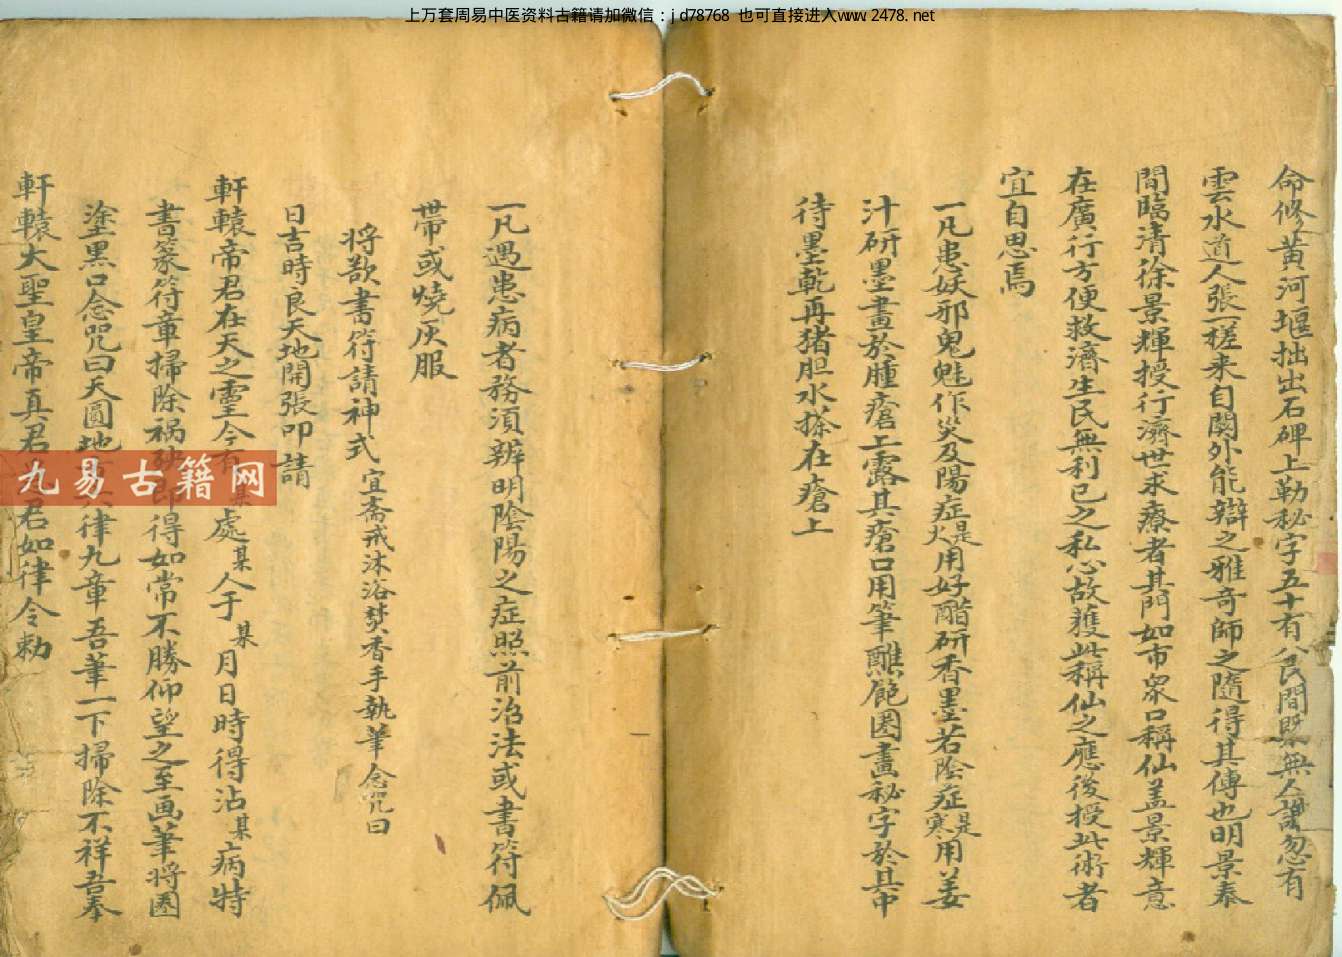 上万套周易中医资料古籍请加微信：jd78768 也可直接进入www.2478.net
命修黄河堰拙出石碑上勒秘字五十有八民間既無人識忽有
雲水道人張一槎来自關外能辯之雅奇師之隨得其傳也明景泰
間臨清徐景輝授行濟世求療者其門如市衆口稱仙盖景輝意
在廣行方便救濟生民無利已之私心故獲此稱仙之應後授此術者
宜自思焉
一凡患妖邪鬼魅作災及陽症是火用好醋研香墨若陰症是寒用姜
汁研墨畫於腫瘡上露其瘡口用筆醮飽圏畫秘字於其中
待墨乾再猪胆水搽在瘡上
一凡遇患病者務須辨明陰陽之症照前治法或書符佩
帶或燒灰服
将欲書符請神式 宜齋戒沐浴焚香手執筆念咒曰
日吉時良天地開張叩請
軒轅帝君在天之靈今有某處某人于某月日時得沾某病特
書篆符章掃除禍 即得如常不勝仰望之至画筆将圏
塗黑口念咒曰天圓地 律九章吾筆一下掃除不祥吾奉
軒轅大聖皇帝真君 君如律令勅
九易古籍网